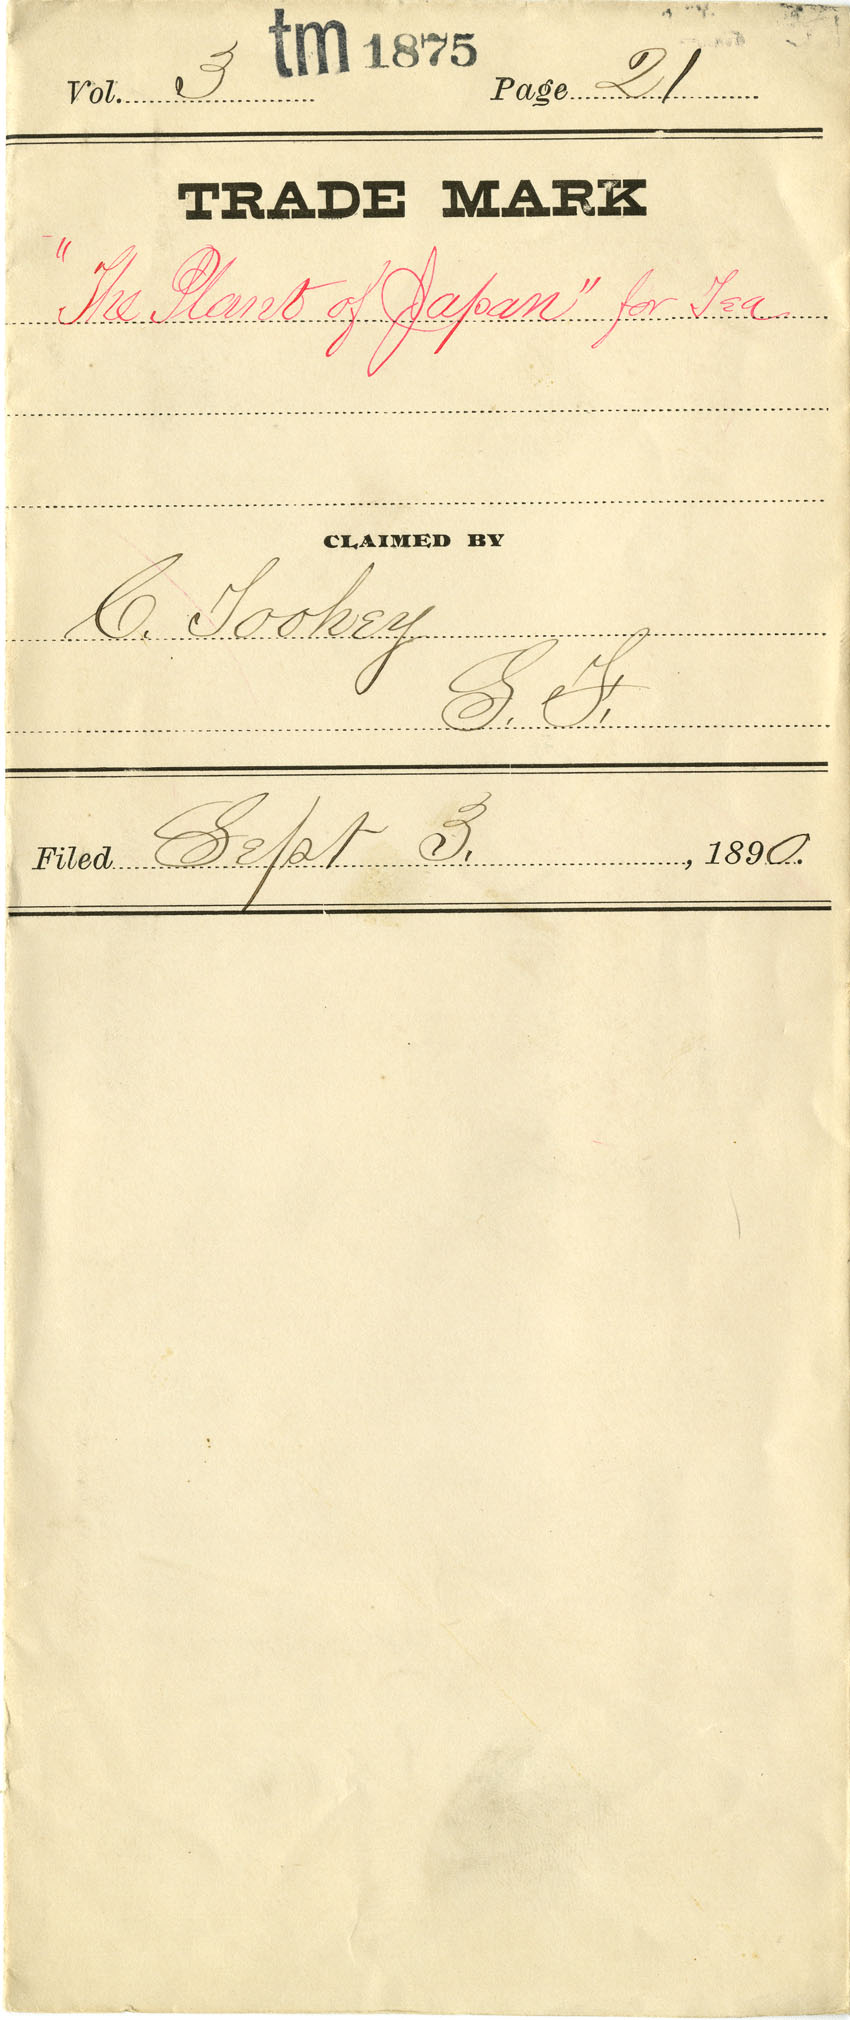 tm 1875
Vol. 3 Page 21
TRADE MARK
"The Plant of Japan" for Tea
CLAIMED BY
C. Tookey
S. F.
Filed Sept 3. , 1890.